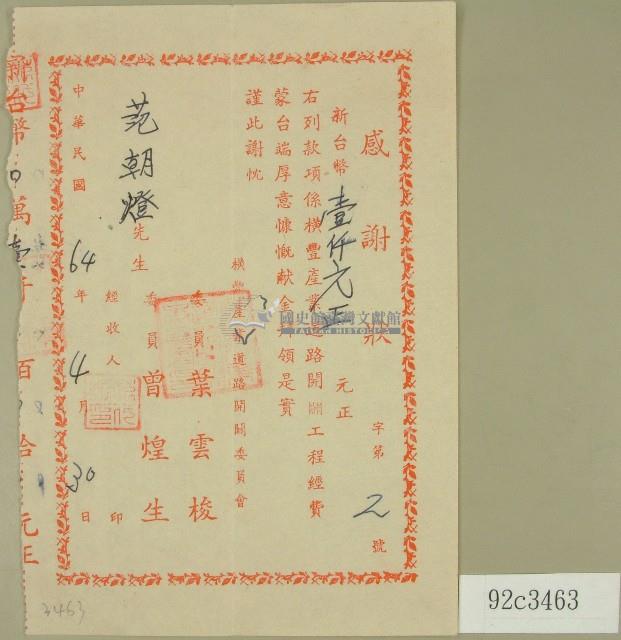 感謝狀
字第2號
新台幣壹仟元正元正
右列款項係橫豐產業道路開闢工程經費
蒙台端厚意慷慨献金
領是實
謹此謝忱
橫豐產業道路開闢委員會
委員葉雲梭
委員曾煌生
經收人
印
范朝燈先生
中華民國64年4月30日
新台幣
萬壹仟
百
拾
元正
國史館臺灣文獻館
TAIWAN HISTORICA
3463
92c3463